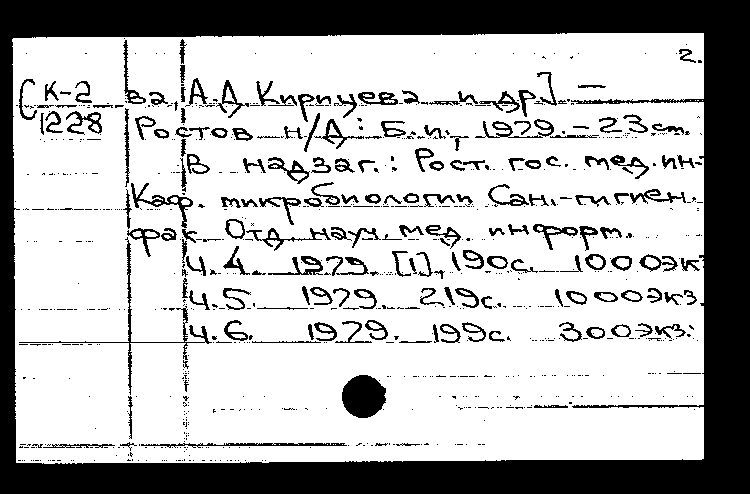 2.
К-2 ва, А.Д Кирицева и др] —
1228 Ростов н/Д: Б.и., 1979. – 23 см.
В надзаг.: Рост. гос. мед. ин-
Каф. микробиологии Сан.-гигиен.
фак. Отд. науч. мед. информ.
Ч. 4. 1979. [1], 190с. 1000экз
Ч. 5. 1979. 219с. 1000экз.
Ч. 6. 1979. 199с. 300экз.